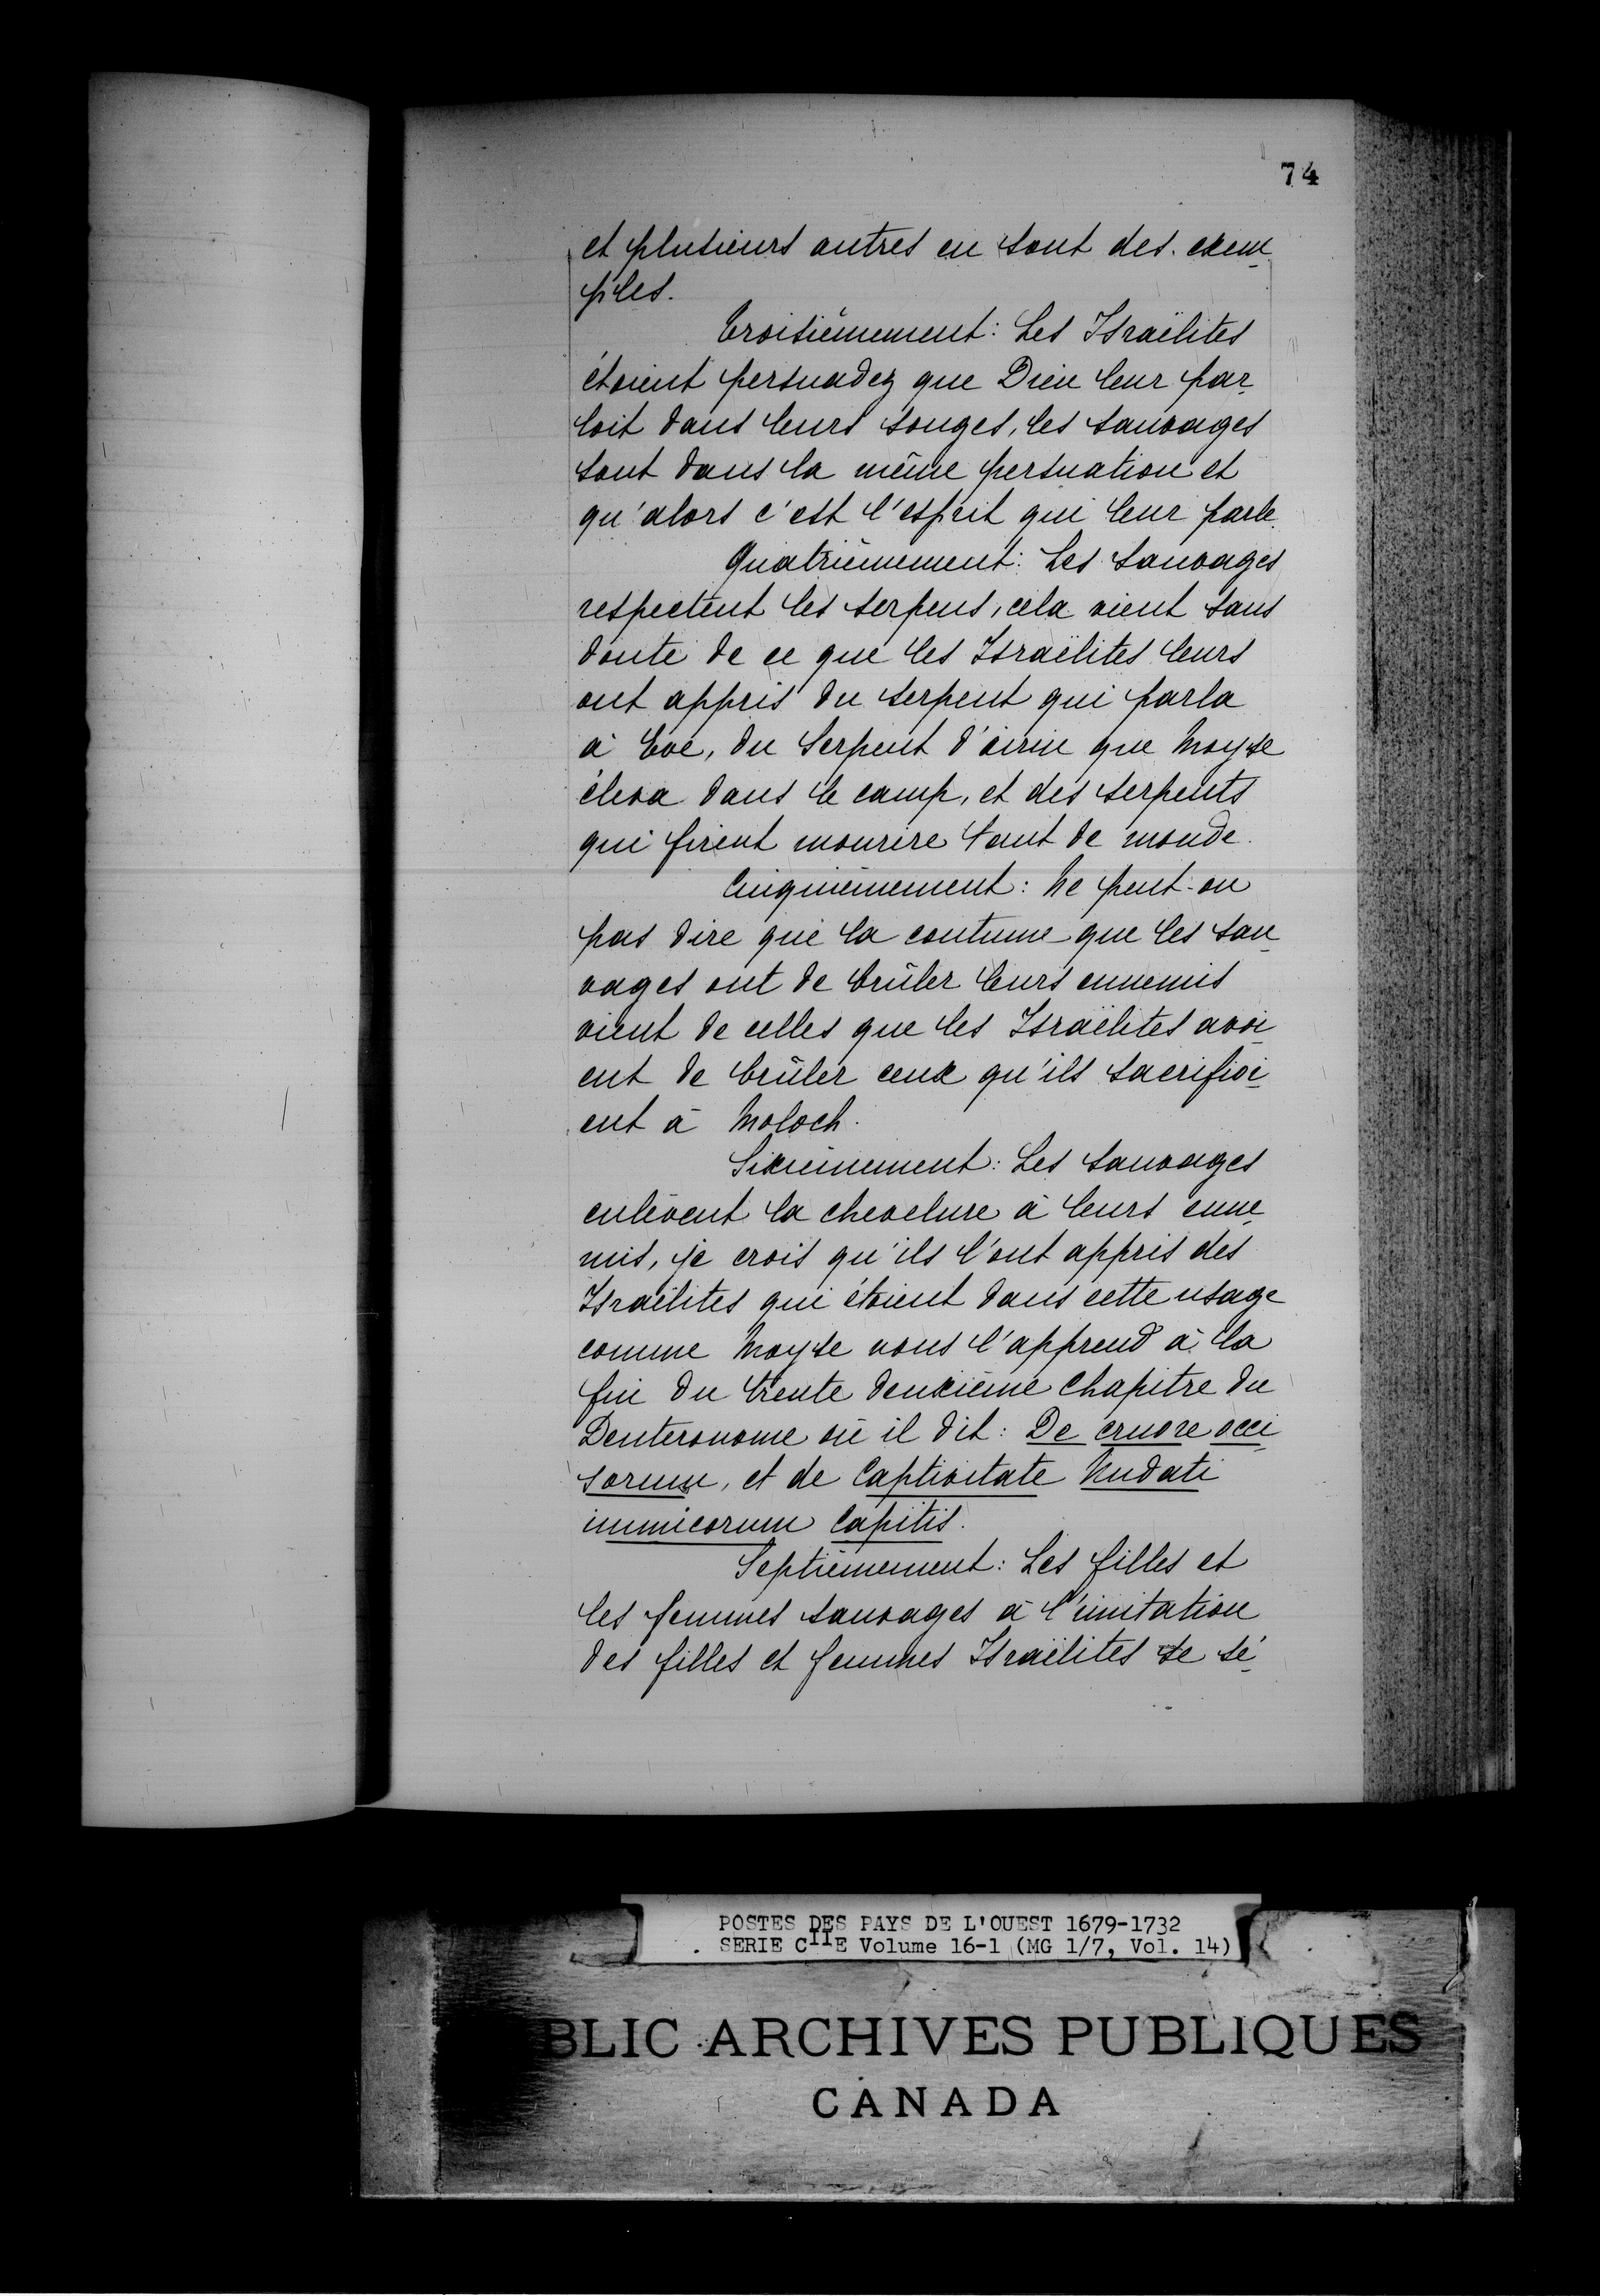 74
et plusieurs autres en sont des exem-
ples.
Troisiêmement: Les Israëlites
étoient persuadez que Dieu leur par-
loit dans leurs songes, les sauvages
sont dans la même persuation et
qu'alors c'est l'esprit qui leur parle
Quatriêmement: Les sauvages
respectent les serpens, cela vient sans
doute de ce que les Israëlites leurs
ont appris du serpent qui parla
à Eve, du Serpent d'airin que Moyse
éleva dans le camp, et des serpents
qui firent mourire tant de monde.
Cinquiêmement: Ne peut-on
pas dire que la coutume que les sau-
vages ont de brûler leurs ennemis
vient de celles que les Israëlites avoi-
ent de brûler ceux qu'ils sacrifioi-
ent à Moloch.
Sixiêmement: Les sauvages
enlèvent la chevelure à leurs enne-
mis, je crois qu'ils l'ont appris des
Israëlites qui étoient dans cette usage
comme Moyse nous l'apprend à la
fin du trente deuxième chapitre du
Deuteronome où il dit: De cruore occi-
sorum, et de Captivitate Nudati
inimicorum Capitis.
Septiêmement: Les filles et
les femmes sauvages à l'imitation
des filles et femmes Israëlites se sé-
POSTES DES PAYS DE L'OUEST 1679-1732
. SERIE CIIE Volume 16-1 (MG 1/7, Vol. 14)
BLIC ARCHIVES PUBLIQUES
CANADA